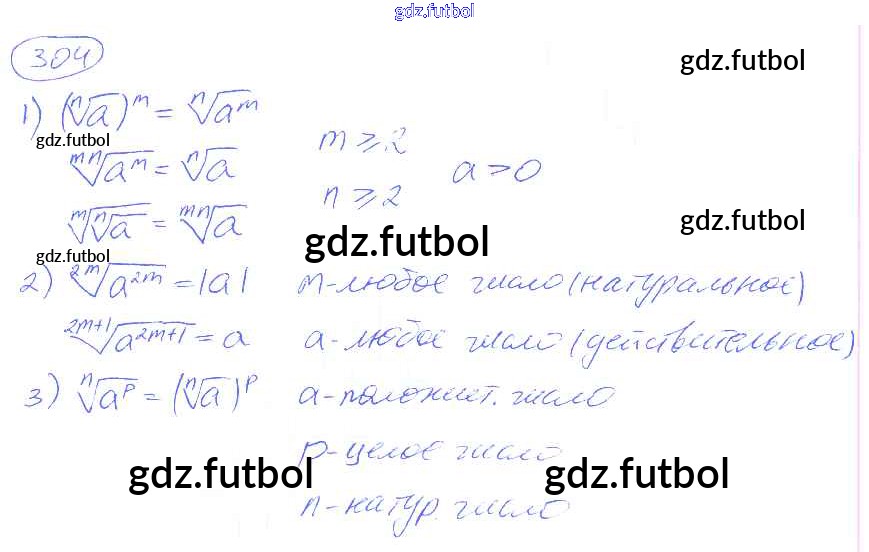 gdz.futbol
304
gdz.futbol
1) (ⁿ√a)ᵐ = ⁿ√aᵐ
gdz.futbol
m ≥ 2
ᵐⁿ√aᵐ = ⁿ√a
a > 0
n ≥ 2
ᵐ√ⁿ√a = ᵐⁿ√a
gdz.futbol
gdz.futbol
gdz.futbol
2) ²ᵐ√a²ᵐ = |a| m-любое число (натуральное)
²ᵐ⁺¹√a²ᵐ⁺¹ = a a-любое число (действительное)
3) ⁿ√aᵖ = (ⁿ√a)ᵖ a-положит. число
p-целое число
gdz.futbol gdz.futbol
n-натур. число